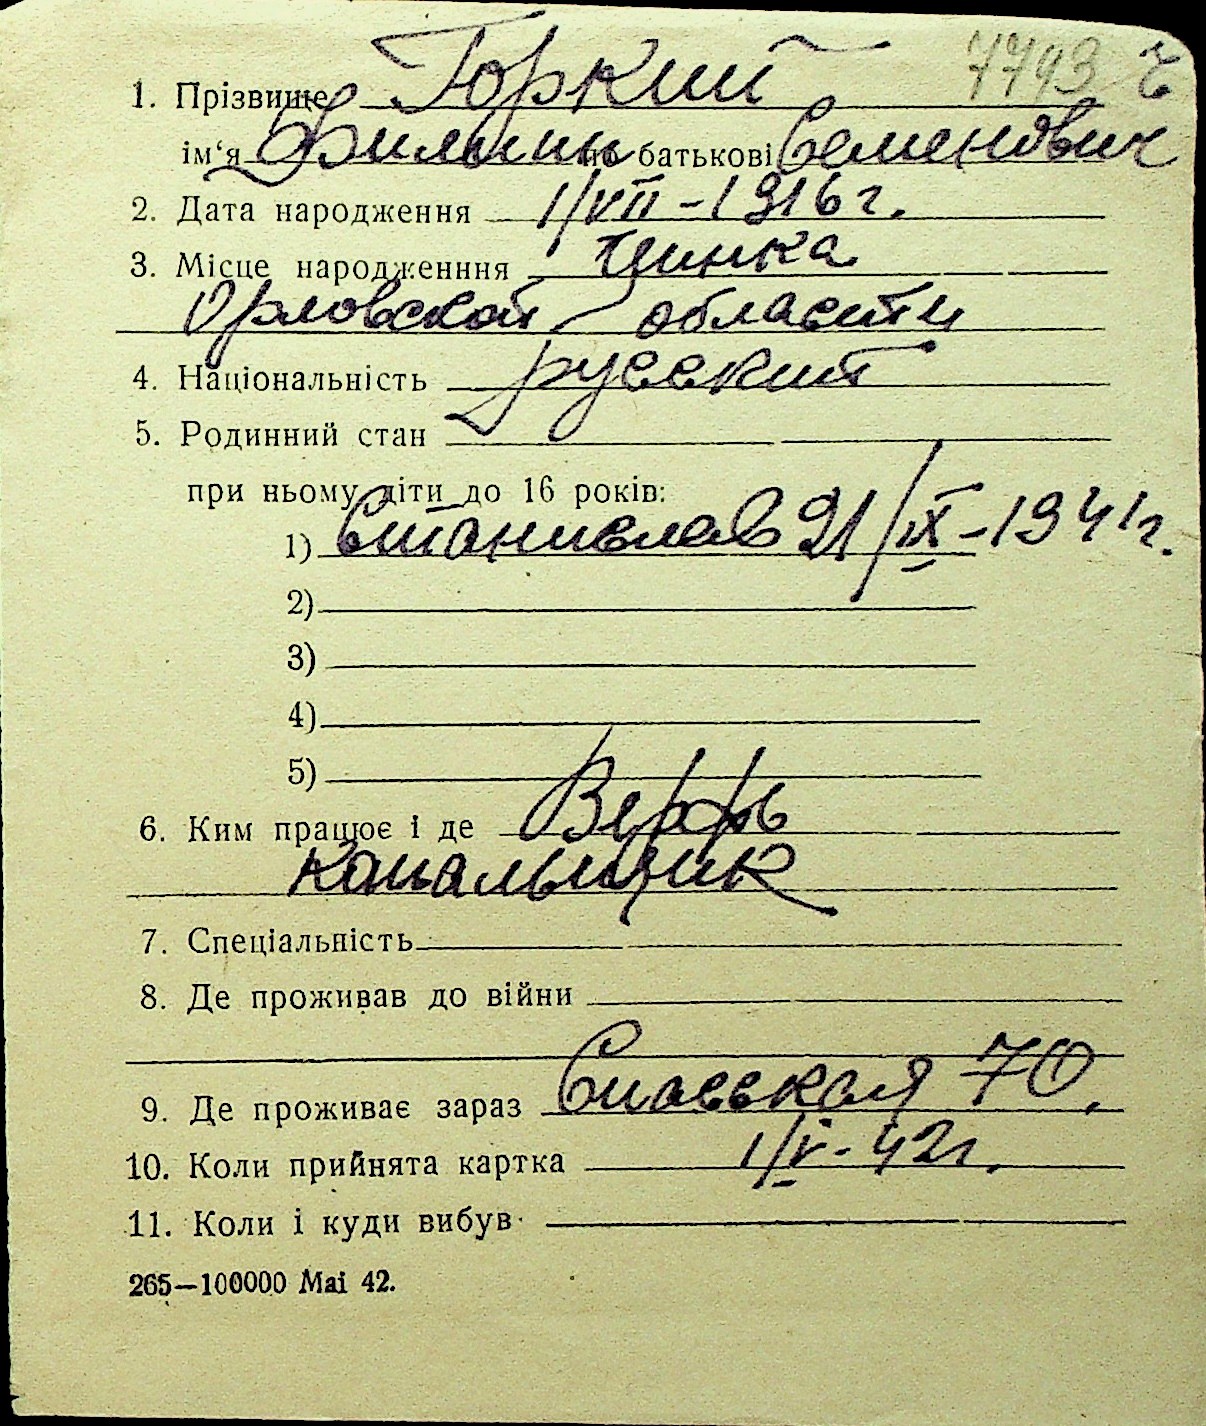 7793
1. Прізвище Горкий
ім‘я Филипп по батькові Семенович
2. Дата народження 1/VII-1916 г.
3. Місце народженння Цинка
Орловской области
4. Національність русский
5. Родинний стан
при ньому діти до 16 років:
1) Станислав 21/IX-1941 г.
2)
3)
4)
5)
6. Ким працює і де Верфь
Копальщик
7. Спеціальність
8. Де проживав до війни
9. Де проживає зараз Спасская 70.
10. Коли прийнята картка 1/V-42 г.
11. Коли і куди вибув
265—100000 Mai 42.